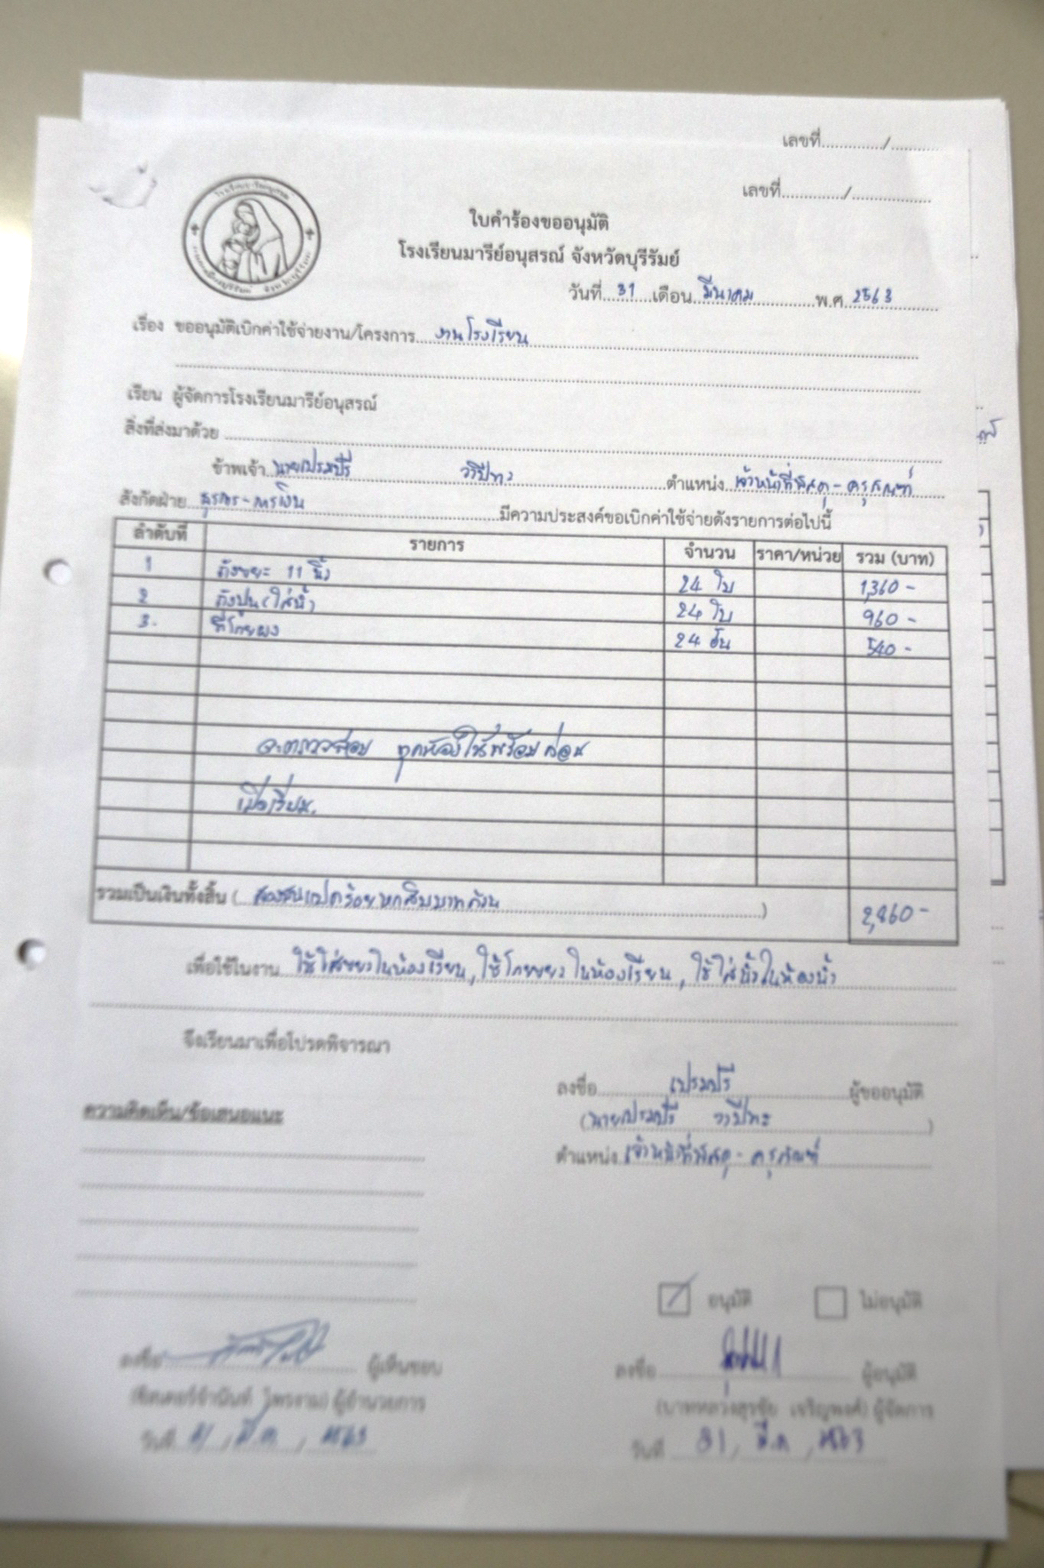 เลขที่............/.........
เลขที่............/................
ใบคำร้องขออนุมัติ
โรงเรียนมารีย์อนุสรณ์ จังหวัดบุรีรัมย์
วันที่ 31 เดือน มีนาคม พ.ศ. 2563
เรื่อง ขออนุมัติเบิกค่าใช้จ่ายงาน/โครงการ งานโรงเรียน
เรียน ผู้จัดการโรงเรียนมารีย์อนุสรณ์
สิ่งที่ส่งมาด้วย
ข้าพเจ้า นายเปรมปรี ตำแหน่ง เจ้าหน้าที่พัสดุ-ครุภัณฑ์
สังกัดฝ่าย ธุรการ-การเงิน มีความประสงค์ขอเบิกค่าใช้จ่ายดังรายการต่อไปนี้
ลำดับที่ รายการ จำนวน ราคา/หน่วย รวม (บาท)
1 ถังขยะ 11 นิ้ว 24 ใบ 1,360-
2 ถังปูน (ใส่น้ำ) 24 ใบ 960-
3. ที่โกยผง 24 อัน 540-
ตรวจสอบ ทุกห้องให้พร้อมก่อน
เปิดเรียน.
รวมเป็นเงินทั้งสิ้น ( สองพันแปดร้อยหกสิบบาทถ้วน ) 2,860-
เพื่อใช้ในงาน ใช้ใส่ขยะในห้องเรียน, ใช้โกยขยะในห้องเรียน, ใช้ใส่น้ำในห้องน้ำ
จึงเรียนมาเพื่อโปรดพิจารณา
ลงชื่อ เปรมปรี ผู้ขออนุมัติ
(นายเปรมปรี )
ตำแหน่ง เจ้าหน้าที่พัสดุ-ครุภัณฑ์
ความคิดเห็น/ข้อเสนอแนะ
อนุมัติ ไม่อนุมัติ
ลงชื่อ ผู้เห็นชอบ
ลงชื่อ ผู้อนุมัติ
ผู้อำนวยการ
(บาทหลวงสุรชัย เจริญพงศ์) ผู้จัดการ
วันที่ 31, มี.ค., 2563
วันที่ 31, มี.ค., 2563